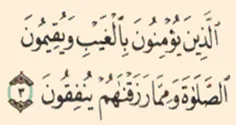 الَّذِينَ يُؤْمِنُونَ بِالْغَيْبِ وَيُقِيمُونَ
الصَّلَوٰةَ وَمِمَّا رَزَقْنَٰهُمْ يُنفِقُونَ ٣